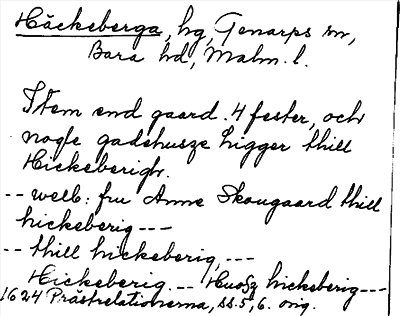 Häckeberga, hg, Genarps sn,
Bara hd, Malm. l.
Item end gaard. 4 fester, och
nogle gadehusze ligger thill
Hickeberigh.
-- welb: fru Anne Skougaard thill
hickeberig ---
-- thill hickeberig, ---
Hickeberig. -- Huosz hickeberig ---
1624 Prästrelationerna, ss. 5, 6. orig.